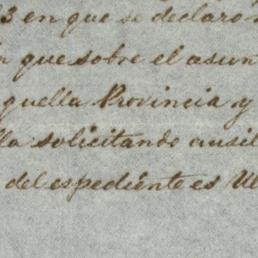 3 en que se declaró
n que sobre el asun
quella Provincia y
lla solicitando ausil
del espediente es